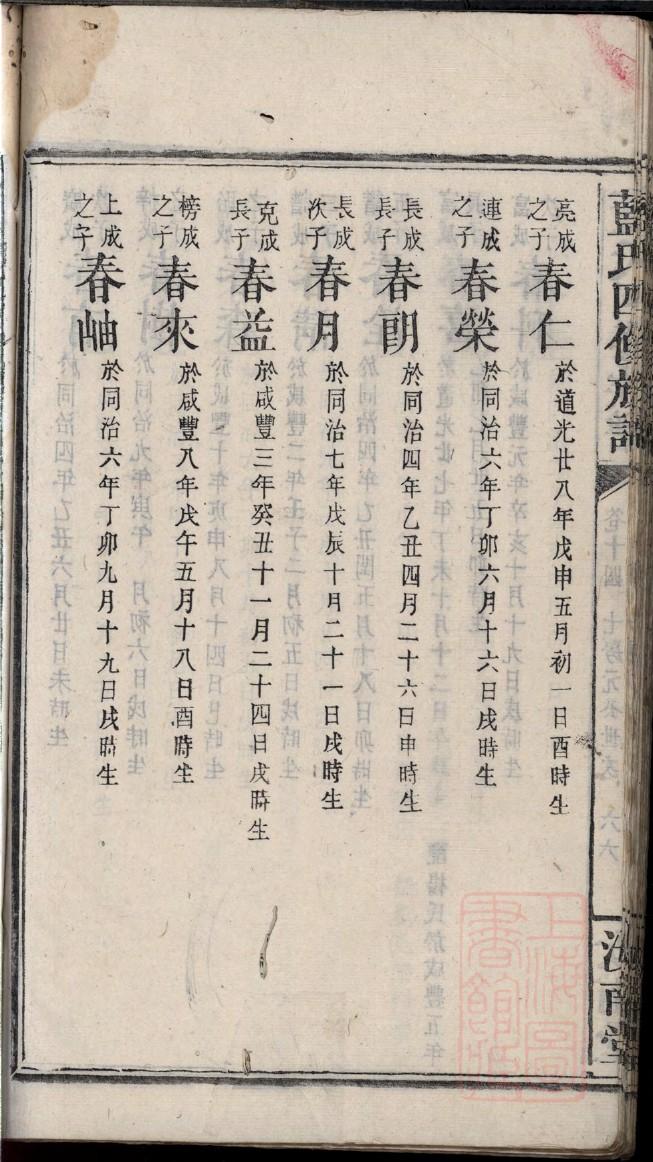 藍氏四修族譜
卷十四
六六
汝南堂
亮成之子 春仁 於道光廿八年戊申五月初一日酉時生
連成之子 春榮 於同治六年丁卯六月十六日戌時生
長成長子 春朗 於同治四年乙丑四月二十六日申時生
長成次子 春月 於同治七年戊辰十月二十一日戌時生
克成長子 春益 於咸豐三年癸丑十一月二十四日戌時生
榜成之子 春來 於咸豐八年戊午五月十八日酉時生
上成之子 春岫 於同治六年丁卯九月十九日戌時生
上海圖書館藏